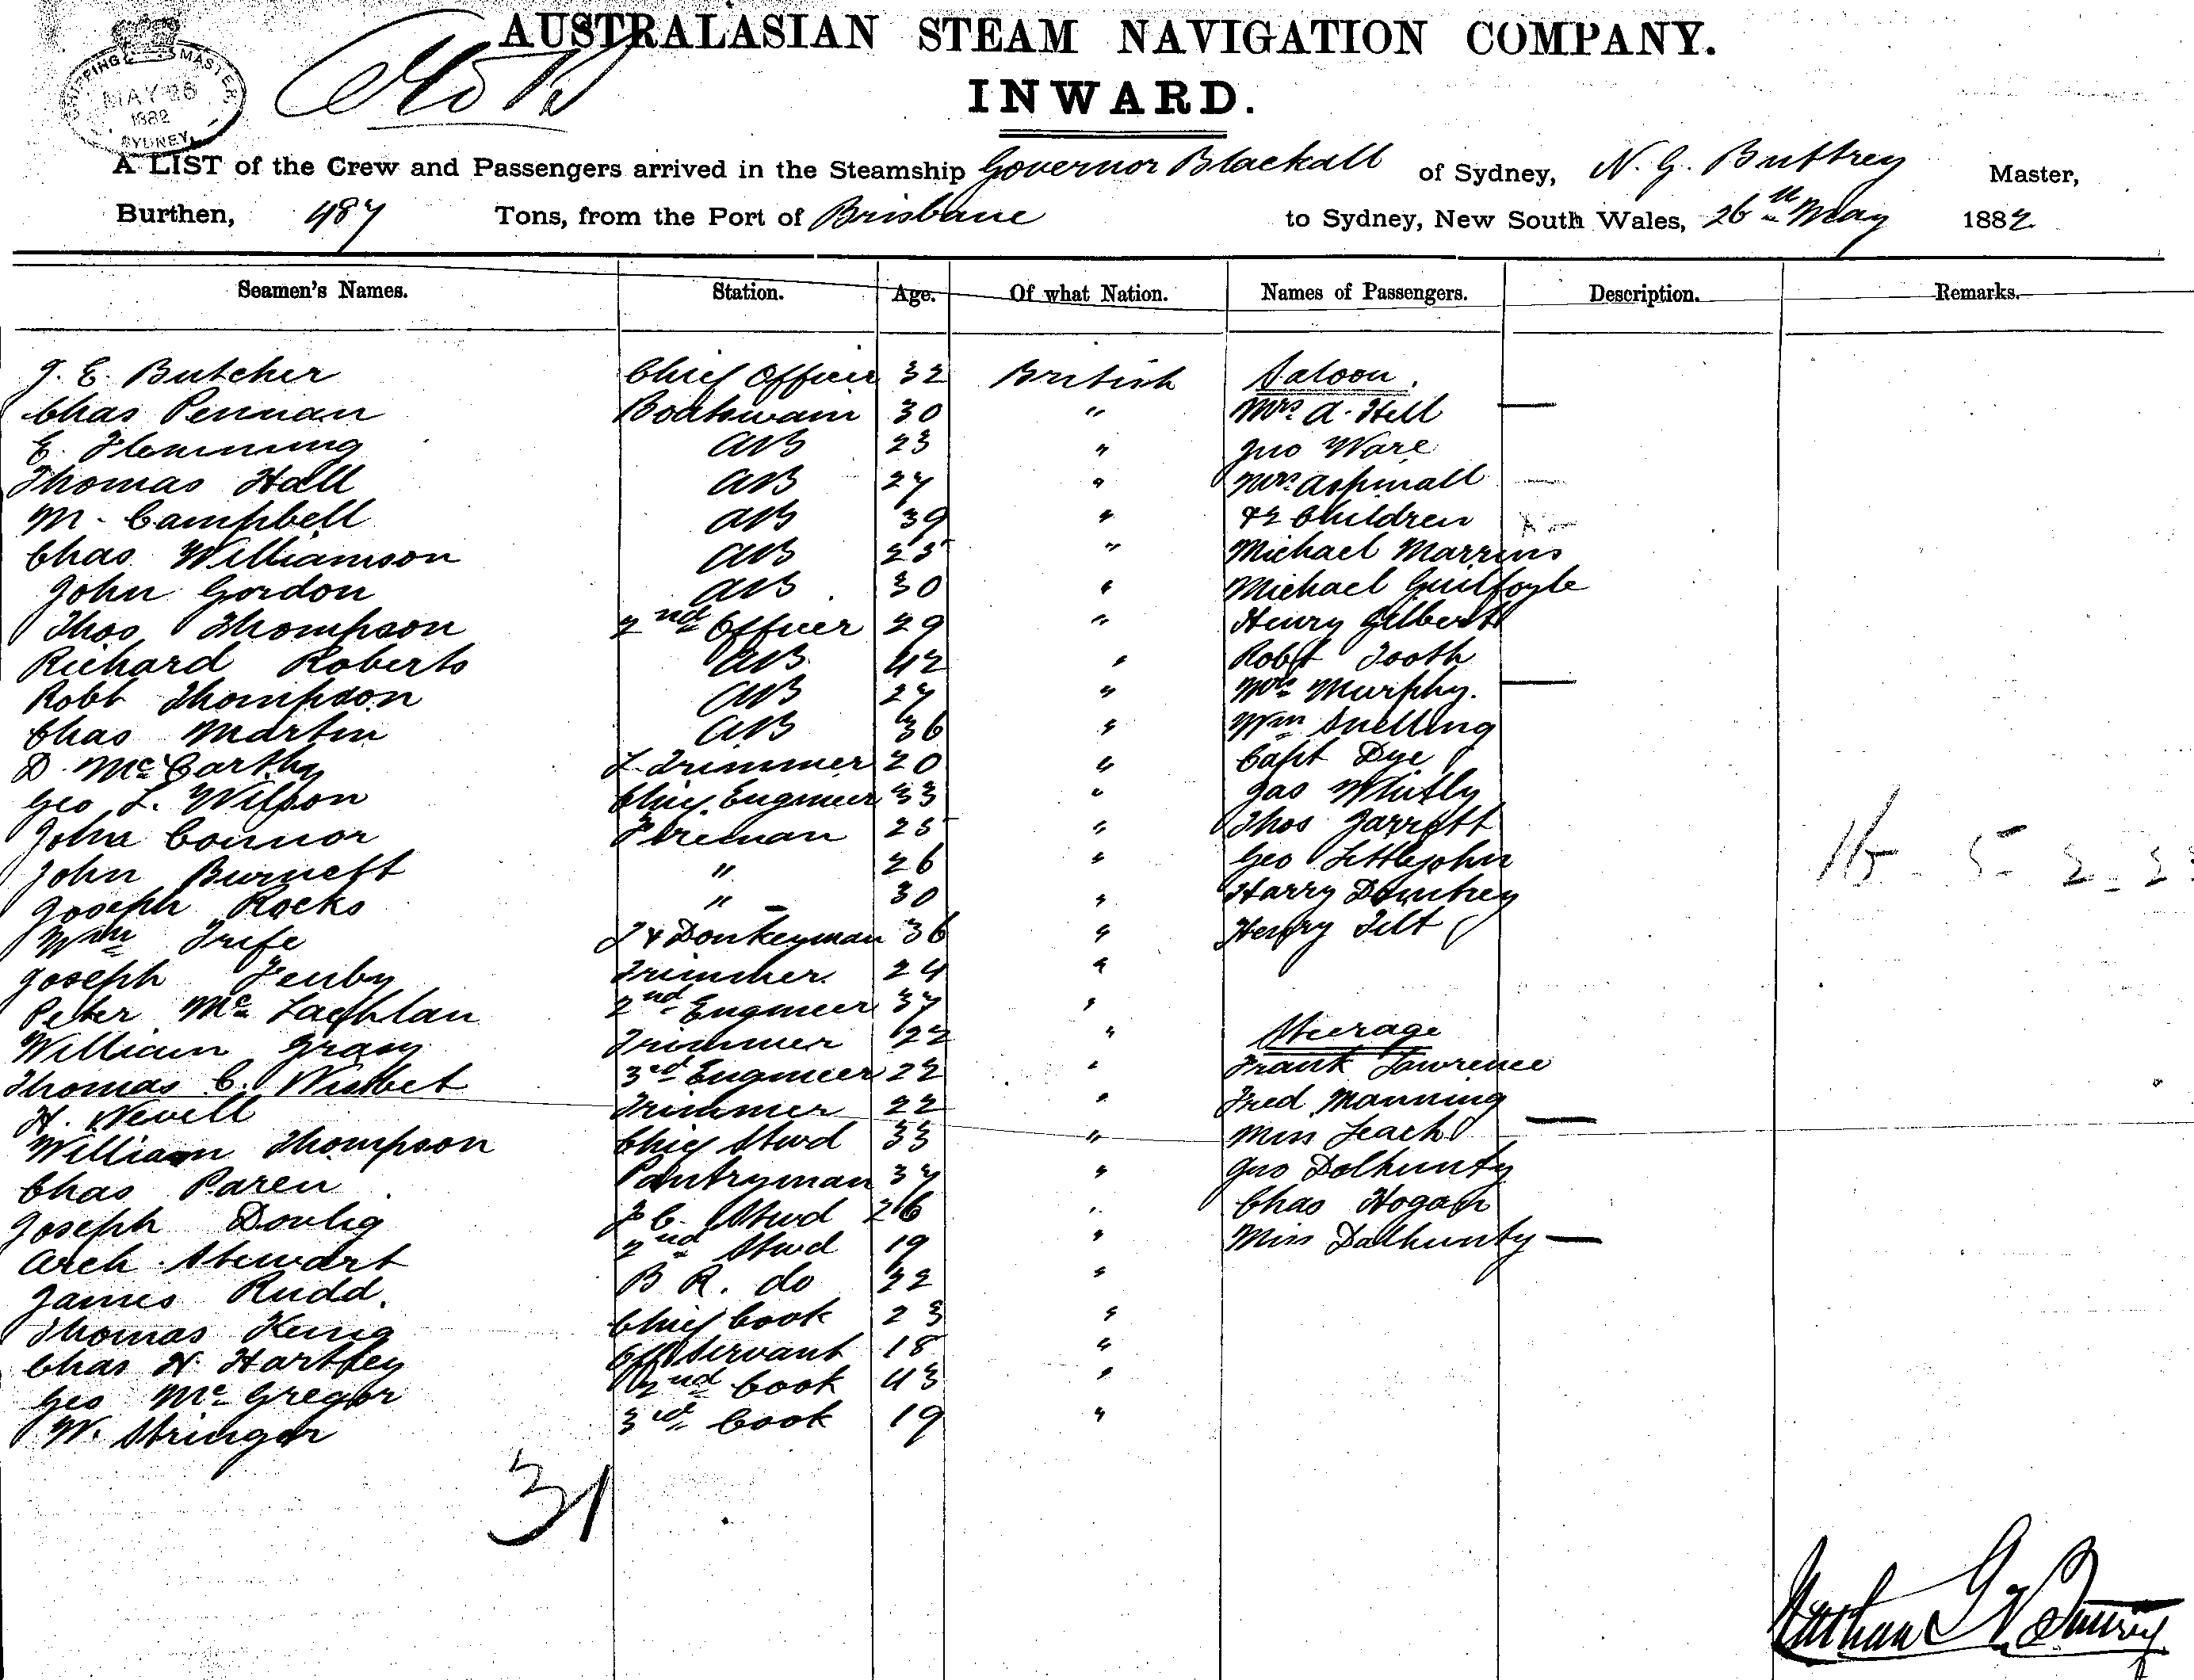 AUSTRALASIAN STEAM NAVIGATION COMPANY.
INWARD.
SHIPPING MASTER
MAY 26
1882
SYDNEY
A LIST of the Crew and Passengers arrived in the Steamship Governor Blackall of Sydney, N. G. Buttrey Master,
Burthen, 487 Tons, from the Port of Brisbane to Sydney, New South Wales, 26th May 1882
Seamen's Names. Station. Age. Of what Nation. Names of Passengers. Description. Remarks.
J. E. Butcher Chief Officer 32 British Saloon.
Chas Pennan Boatswain 30 " Mrs A. Hill
E. Flemming AB 23 " Jno Ware
Thomas Hall AB 27 " Mrs Aspinall
M. Campbell AB 39 " & 2 Children
Chas Williamson AB 25 " Michael Marrins
John Gordon AB 30 " Michael Guilfoyle
Thos Thompson 2nd Officer 29 " Henry Gilbert
Richard Roberts AB 42 " Robt Tooth
Robt Thompson AB 27 " Mrs Murphy.
Chas Martin AB 36 " Wm Snelling
D. McCarthy Trimmer 20 " Capt Dye
Geo L. Wilson Chief Engineer 33 " Jas Whitly
John Connor Fireman 25 " Thos Jarrett
John Burnett " 26 " Geo Littlejohn
Joseph Rocks " 30 " Harry
Wm Trife F & Donkeyman 36 " Henry Tilt
Joseph Fenby Trimmer 24 "
Peter McLachlan 2nd Engineer 37 "
William Gray Trimmer 22 " Steerage
Thomas C. Nisbet 3rd Engineer 22 " Frank Lawrence
H. Nevell Trimmer 22 " Fred Manning
William Thompson Chief Stwd 33 " Miss Leach
Chas Paren Pantryman 37 " Jno Dolhunty
Joseph F C. Stwd 26 " Chas Hogan
Arch Stewart 2nd Stwd 19 " Miss Dalhunty
James Rudd. B R. do 32 "
Thomas King Chief Cook 23 "
Chas H. Hartley Off Servant 18 "
Geo McGregor 2nd Cook 43 "
W. Stringer 3rd Cook 19 "
31